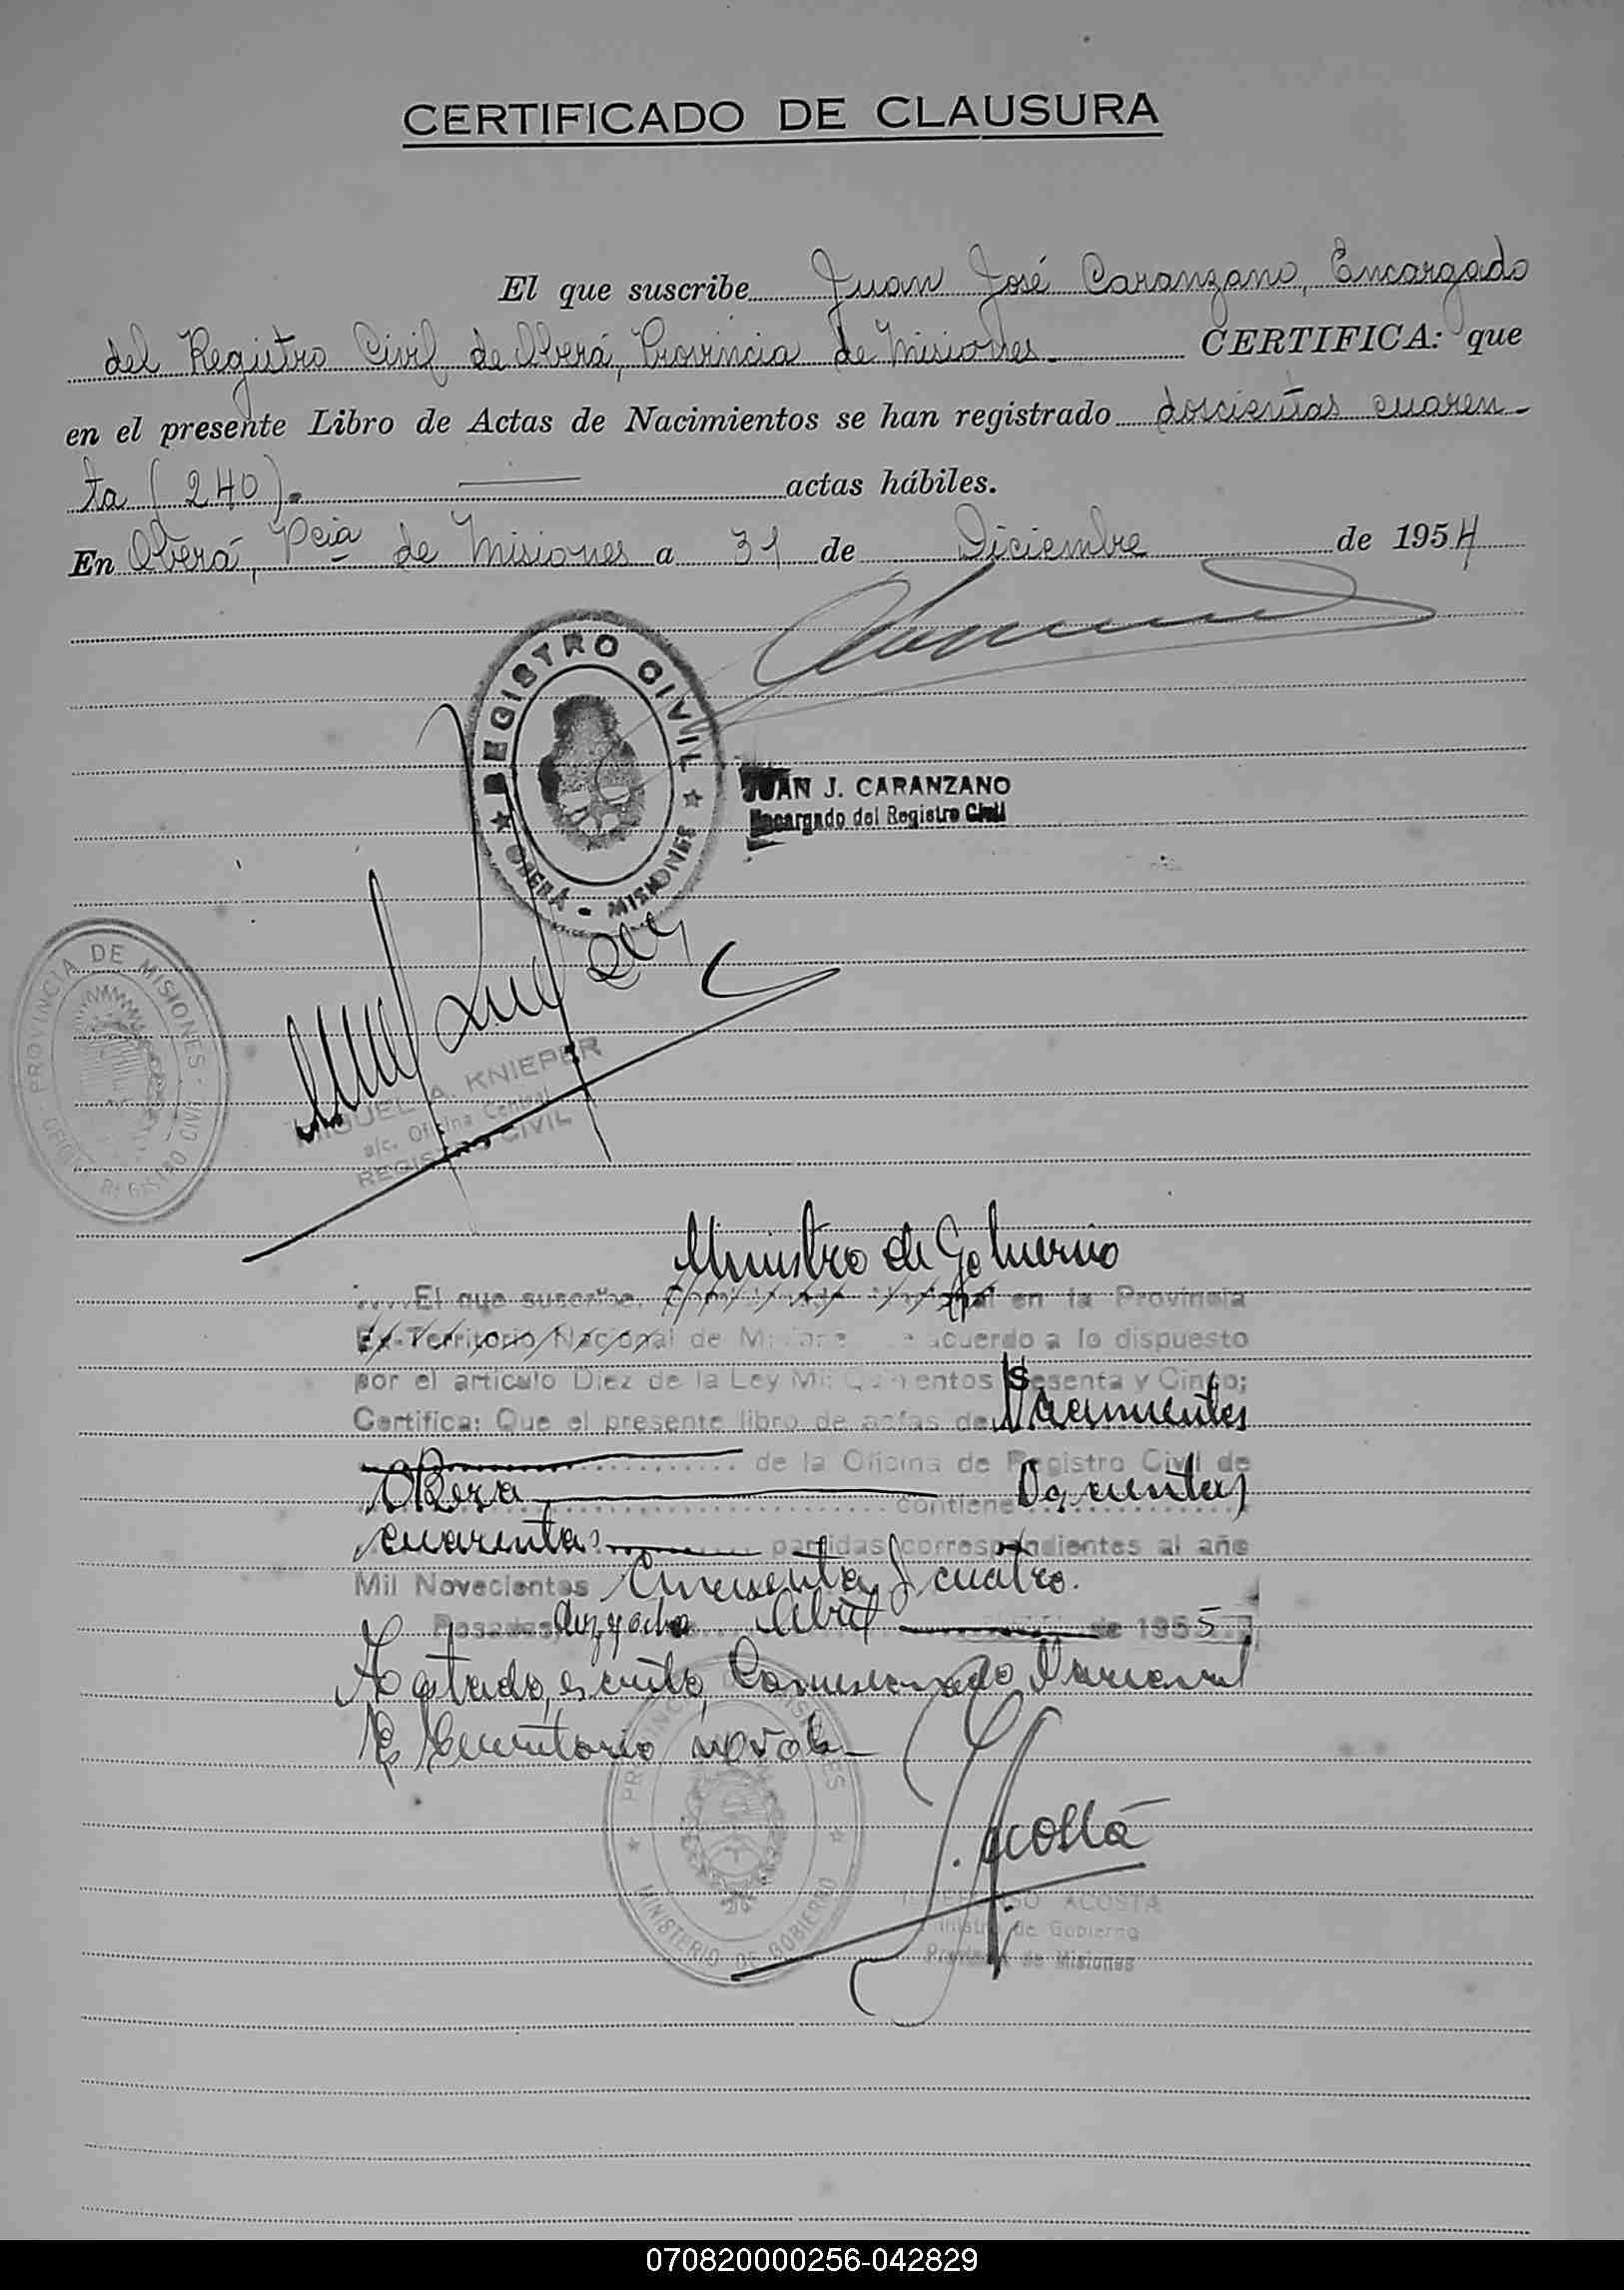 CERTIFICADO DE CLAUSURA
El que suscribe Juan José Caranzano, Encargado
del Registro Civil de Oberá, Provincia de Misiones.- CERTIFICA: que
en el presente Libro de Actas de Nacimientos se han registrado doscientas cuaren-
ta (240).- actas hábiles.
En Oberá, Pcia de Misiones a 31 de Diciembre de 1954
REGISTRO CIVIL
OBERÁ - MISIONES
JUAN J. CARANZANO
Encargado del Registro Civil
PROVINCIA DE MISIONES
REGISTRO CIVIL
MIGUEL A. KNIEPER
a/c. Oficina Central
REGISTRO CIVIL
Ministro de Gobierno
El que suscribe, en la Provincia
Ex-Territorio Nacional de Misiones acuerdo a lo dispuesto
por el artículo Diez de la Ley Mil Quinientos Sesenta y Cinco;
Certifica: Que el presente libro de actas de Nacimientos
de la Oficina de Registro Civil de
Obera contiene Docientas
cuarenta partidas correspondientes al año
Mil Novecientos Cincuenta y cuatro.
Posadas, diez y ocho Abril de 1955
Testado, escrito, Comisionado Nacional
Ex Territorio no vale-
PROVINCIA DE MISIONES
MINISTERIO DE GOBIERNO
J. Acosta
ILDEFONSO ACOSTA
Ministro de Gobierno
Provincia de Misiones
070820000256-042829